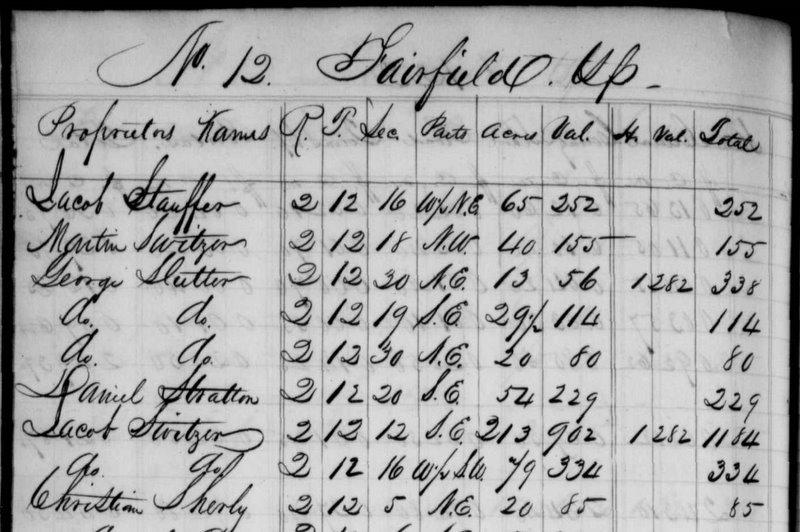 No. 12. Fairfield Tp.
Proprietors Names R. T. Sec. Parts Acres Val. H. Val. Total
Jacob Stauffer 2 12 16 W/p N.E 65 252 252
Martin Switzer 2 12 18 N.W. 40 155 155
George Sutter 2 12 30 N.E. 13 56 1 282 338
do. do. 2 12 19 S.E. 29 114 114
do. do. 2 12 30 N.E. 20 80 80
Daniel Stratton 2 12 20 S.E. 54 229 229
Jacob Switzer 2 12 12 S.E. 213 902 1 282 1184
do. do 2 12 16 W/p S.W. 79 334 334
Christian Sherly 2 12 5 N.E. 20 85 85